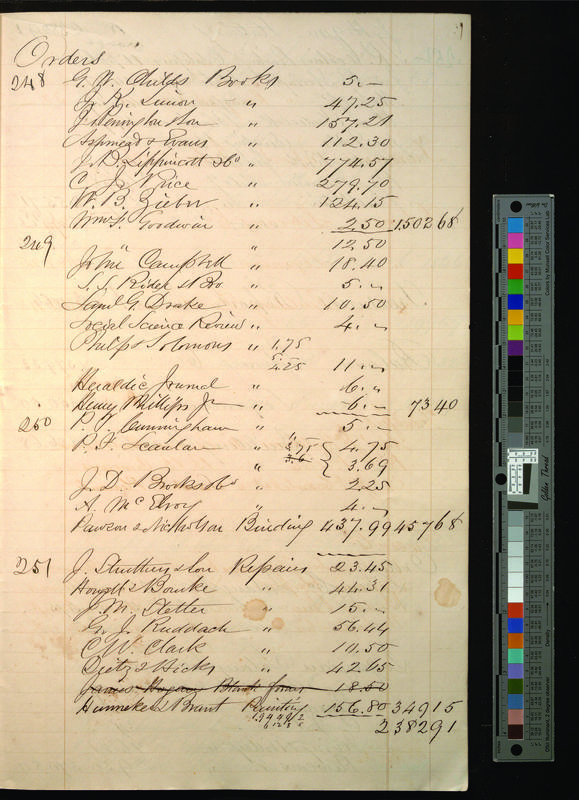 Orders
248 G. W. Childs Books 5.–
J. K. Simon " 47.25
J. Penington & Son " 157.21
Ashmead & Evans " 112.30
J. B. Lippincott & Co " 774.57
C. J. Price " 279.70
W. B. Zieber " 124.15
Wm F. Goodwin " 2.50 1502 68
249 " 12.50
John Campbell " 18.40
S. S. Rider & Bro " 5.–
Saml G. Drake " 10.50
Social Science Review " 4.–
Philp & Solomons " 1.75
5.–
4.25 11.–
Heraldic Journal " 6.–
Henry Phillips Jr " 6.– 73 40
250 P. F. Cunningham " 5.–
P. F. Scanlan " 4.75
" 3.69
J. D. Brooks & Co " 2.25
A. McElroy " 4.–
Pawson & Nicholson Binding 437.99 457 68
251 J. Struthers & Son Repairs 23.45
Howell & Bourke " 44.31
J. M. Stetter " 15.–
G. J. Ruddach " 56.44
C. W. Clark " 10.50
Dietz & Hicks " 42.65
James Hogan Blank forms 18.50
Hunneker Brant Painting 156.80 349 15
2382 91